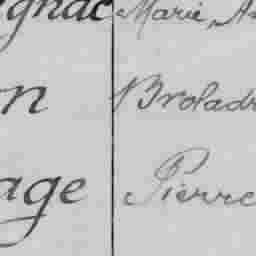 gnac Marie, A
n Broladr
age Pierre